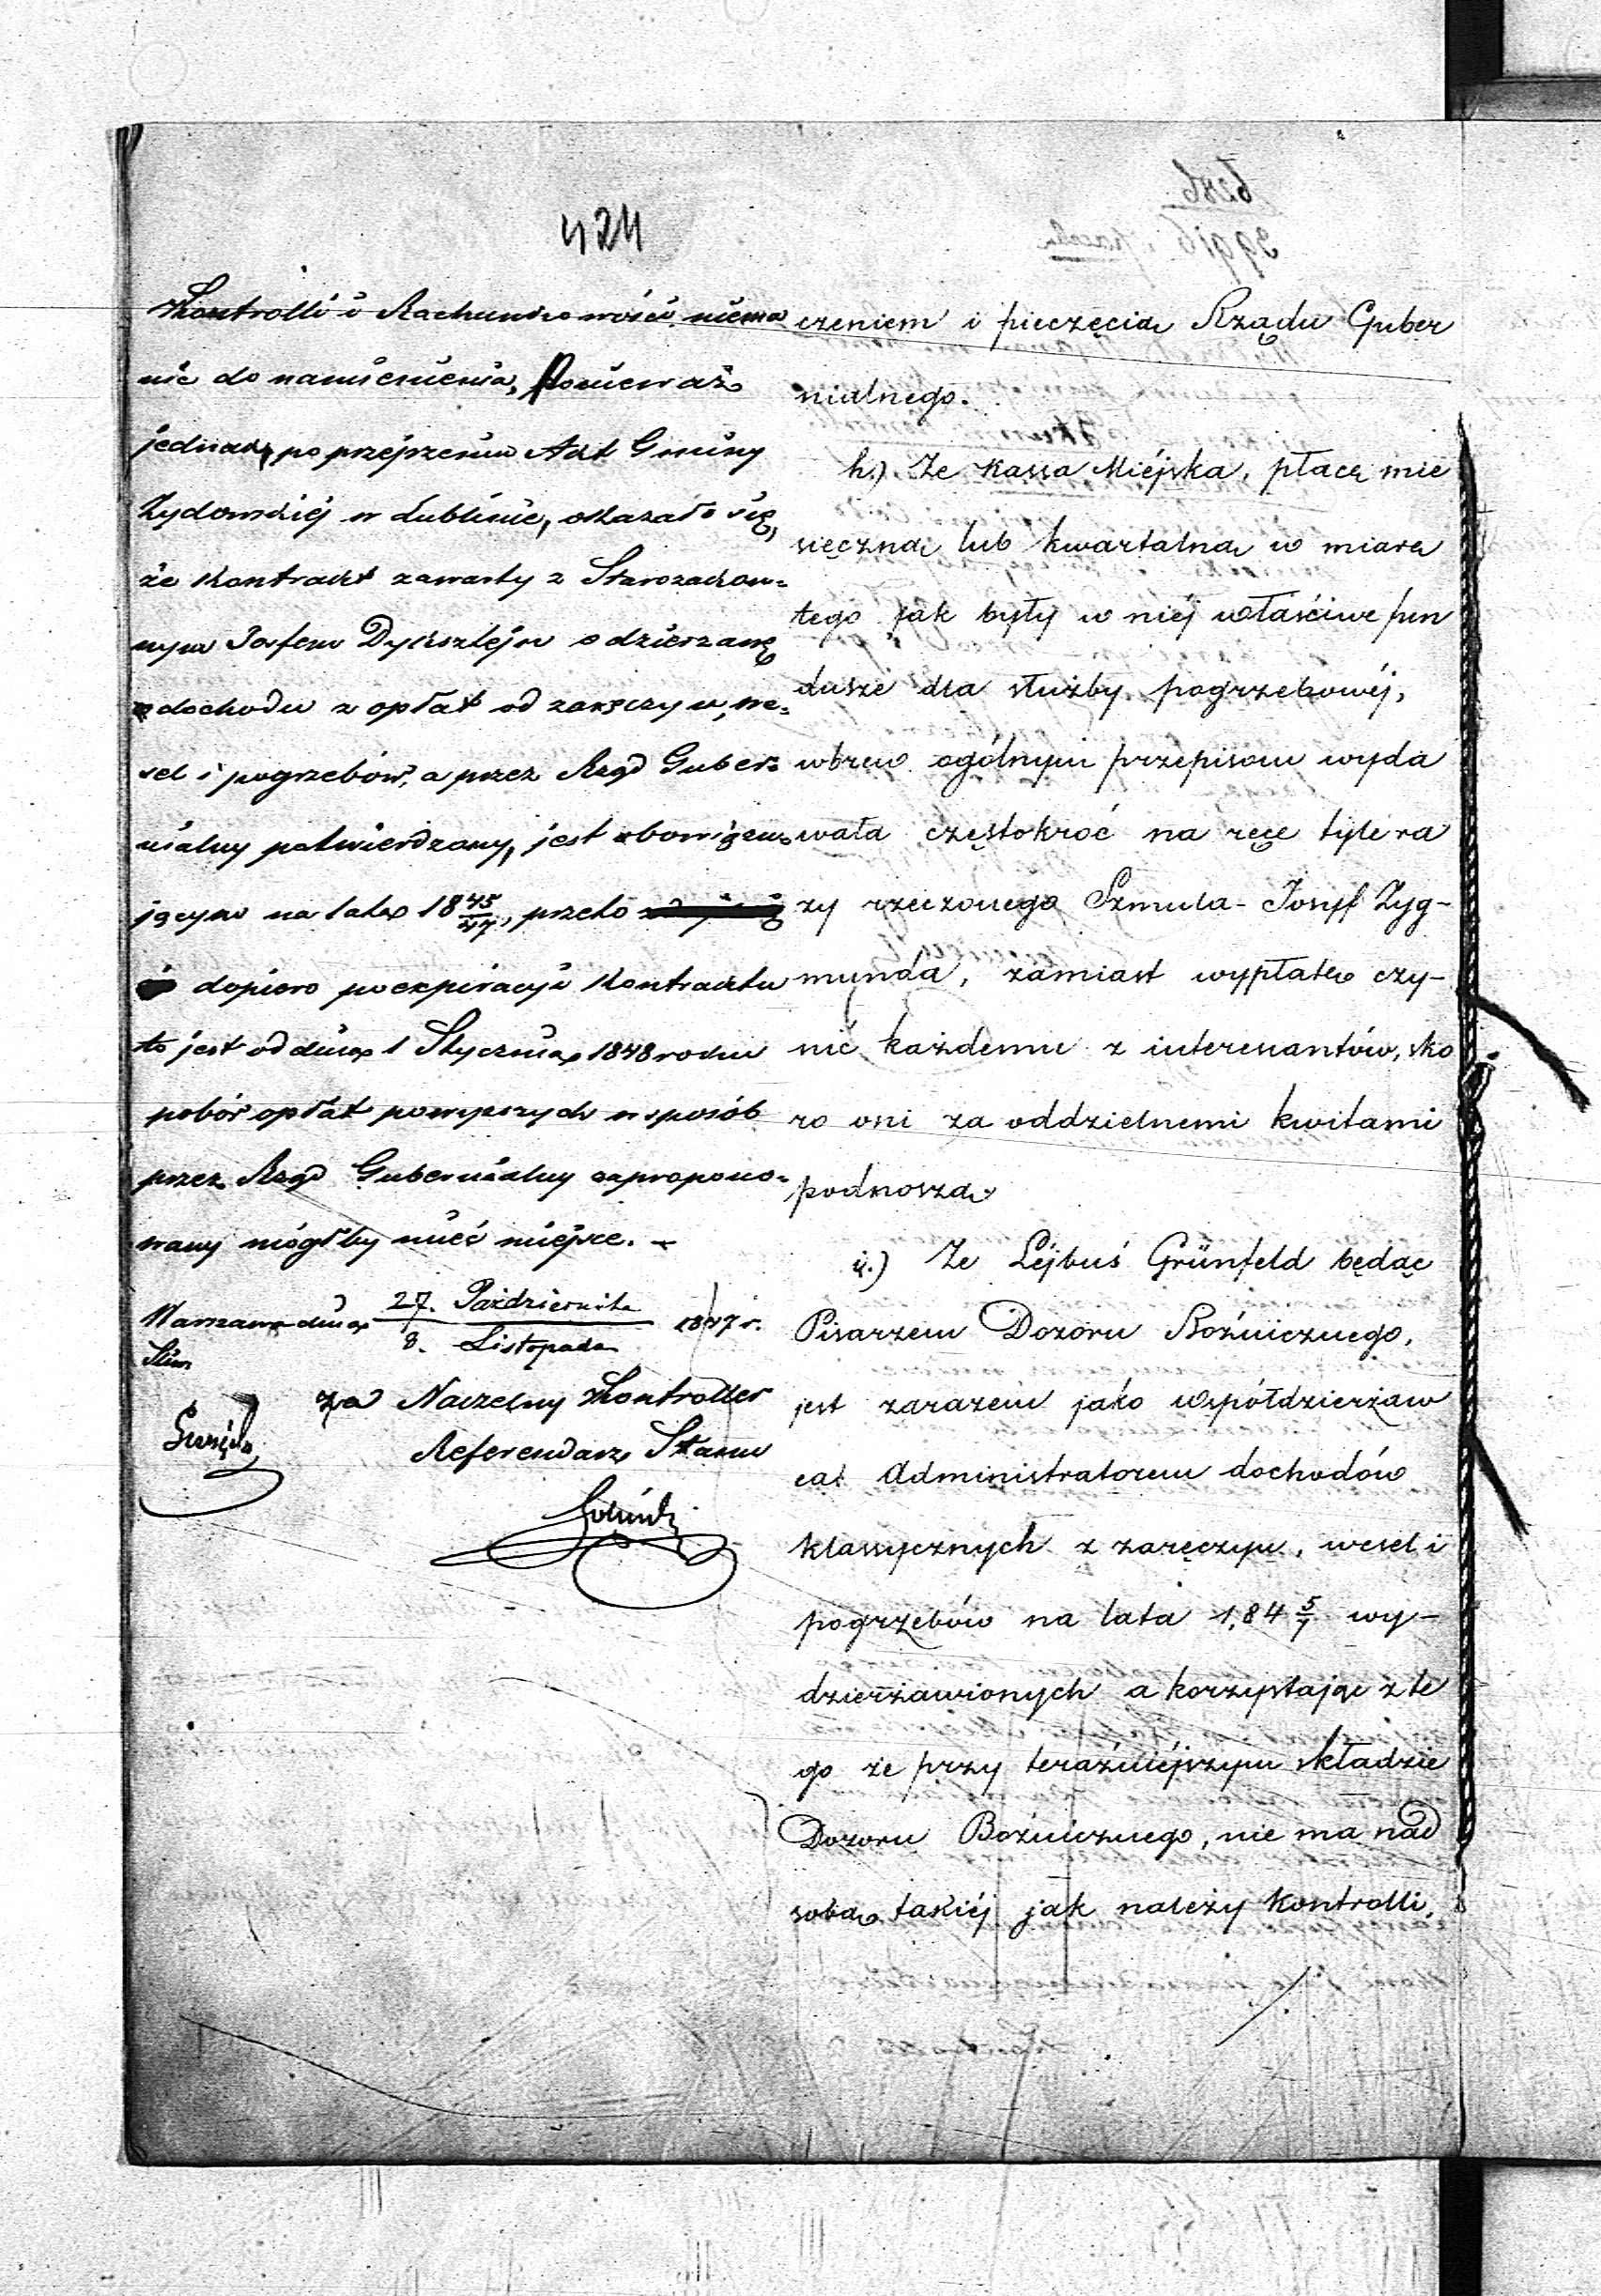 424
Kontrolli i Rachunkowości niema
nic do namienienia, Ponieważ
jednak, po przejrzeniu Akt Gminy
Żydowskiej w Lublinie, okazało się,
że Kontrakt zawarty z Starozakon-
nym Josfem Dyksztejn o dzierzawę
dochodu z opłat od zaręczyn, we-
sel i pogrzebów, a przez Rząd Guber-
nialny potwierdzony, jest obowiązu-
jącym na lata 18 45/47, przeto
dopiero po expiracyi Kontraktu
to jest od dnia 1 Stycznia 1848 roku
pobór opłat powyższych w sposób
przez Rząd Gubernialny zapropono-
wany mógłby mieć miejsce. –
Warszawa dnia 27. Października / 8. Listopada 1847 r.
za Naczelny Kontroller
Referendarz Stanu
czenienm i pieczęcią Rządu Guber
nialnego.
h.) Że Kassa Miéjska, płacę mie
sięczną lub kwartalną w miarę
tego jak były w niéj właściwe fun
dusze dla służby pogrzebowéj,
wbrew ogólnym przepisom wyda
wała częstokroć na ręce tyle ra
zy rzeczonego Szmula - Josyf Zyg-
munda, zamiast wypłatę czy-
nić każdemu z interesantów, sko
ro oni za oddzielnemi kwitami
podnoszą
i.) Że Léjbuś Grünfeld będąc
Pisarzem Dozoru Bożnicznego,
jest zarazem jako współdzierżaw
ca Administratorem dochodów
klassycznych z zaręczyn, wesel i
pogrzebów na lata 184 5/7 wy-
dzierżawionych a korzystając z te
go że przy teraźniéjszym składzie
Dozoru Bożniczego, nie ma nad
sobą takiéj jak należy kontrolli,